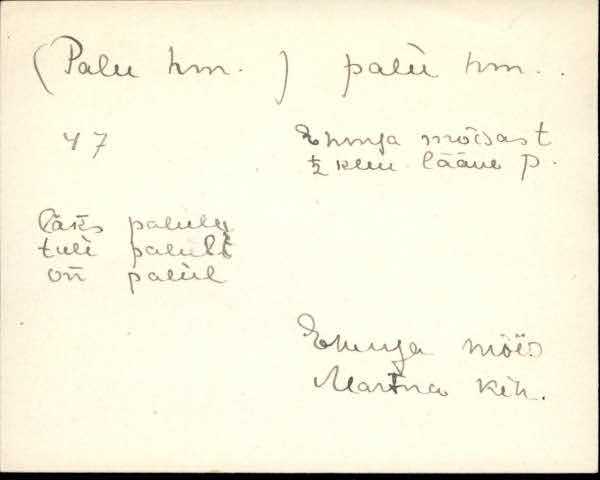 (Palu hm.) palù hm.
47
Ehmja mõisast
½ klm lääne p.
läks palulę
tuli palult
oñ palùl
Ehmja mõis
Martna kih.